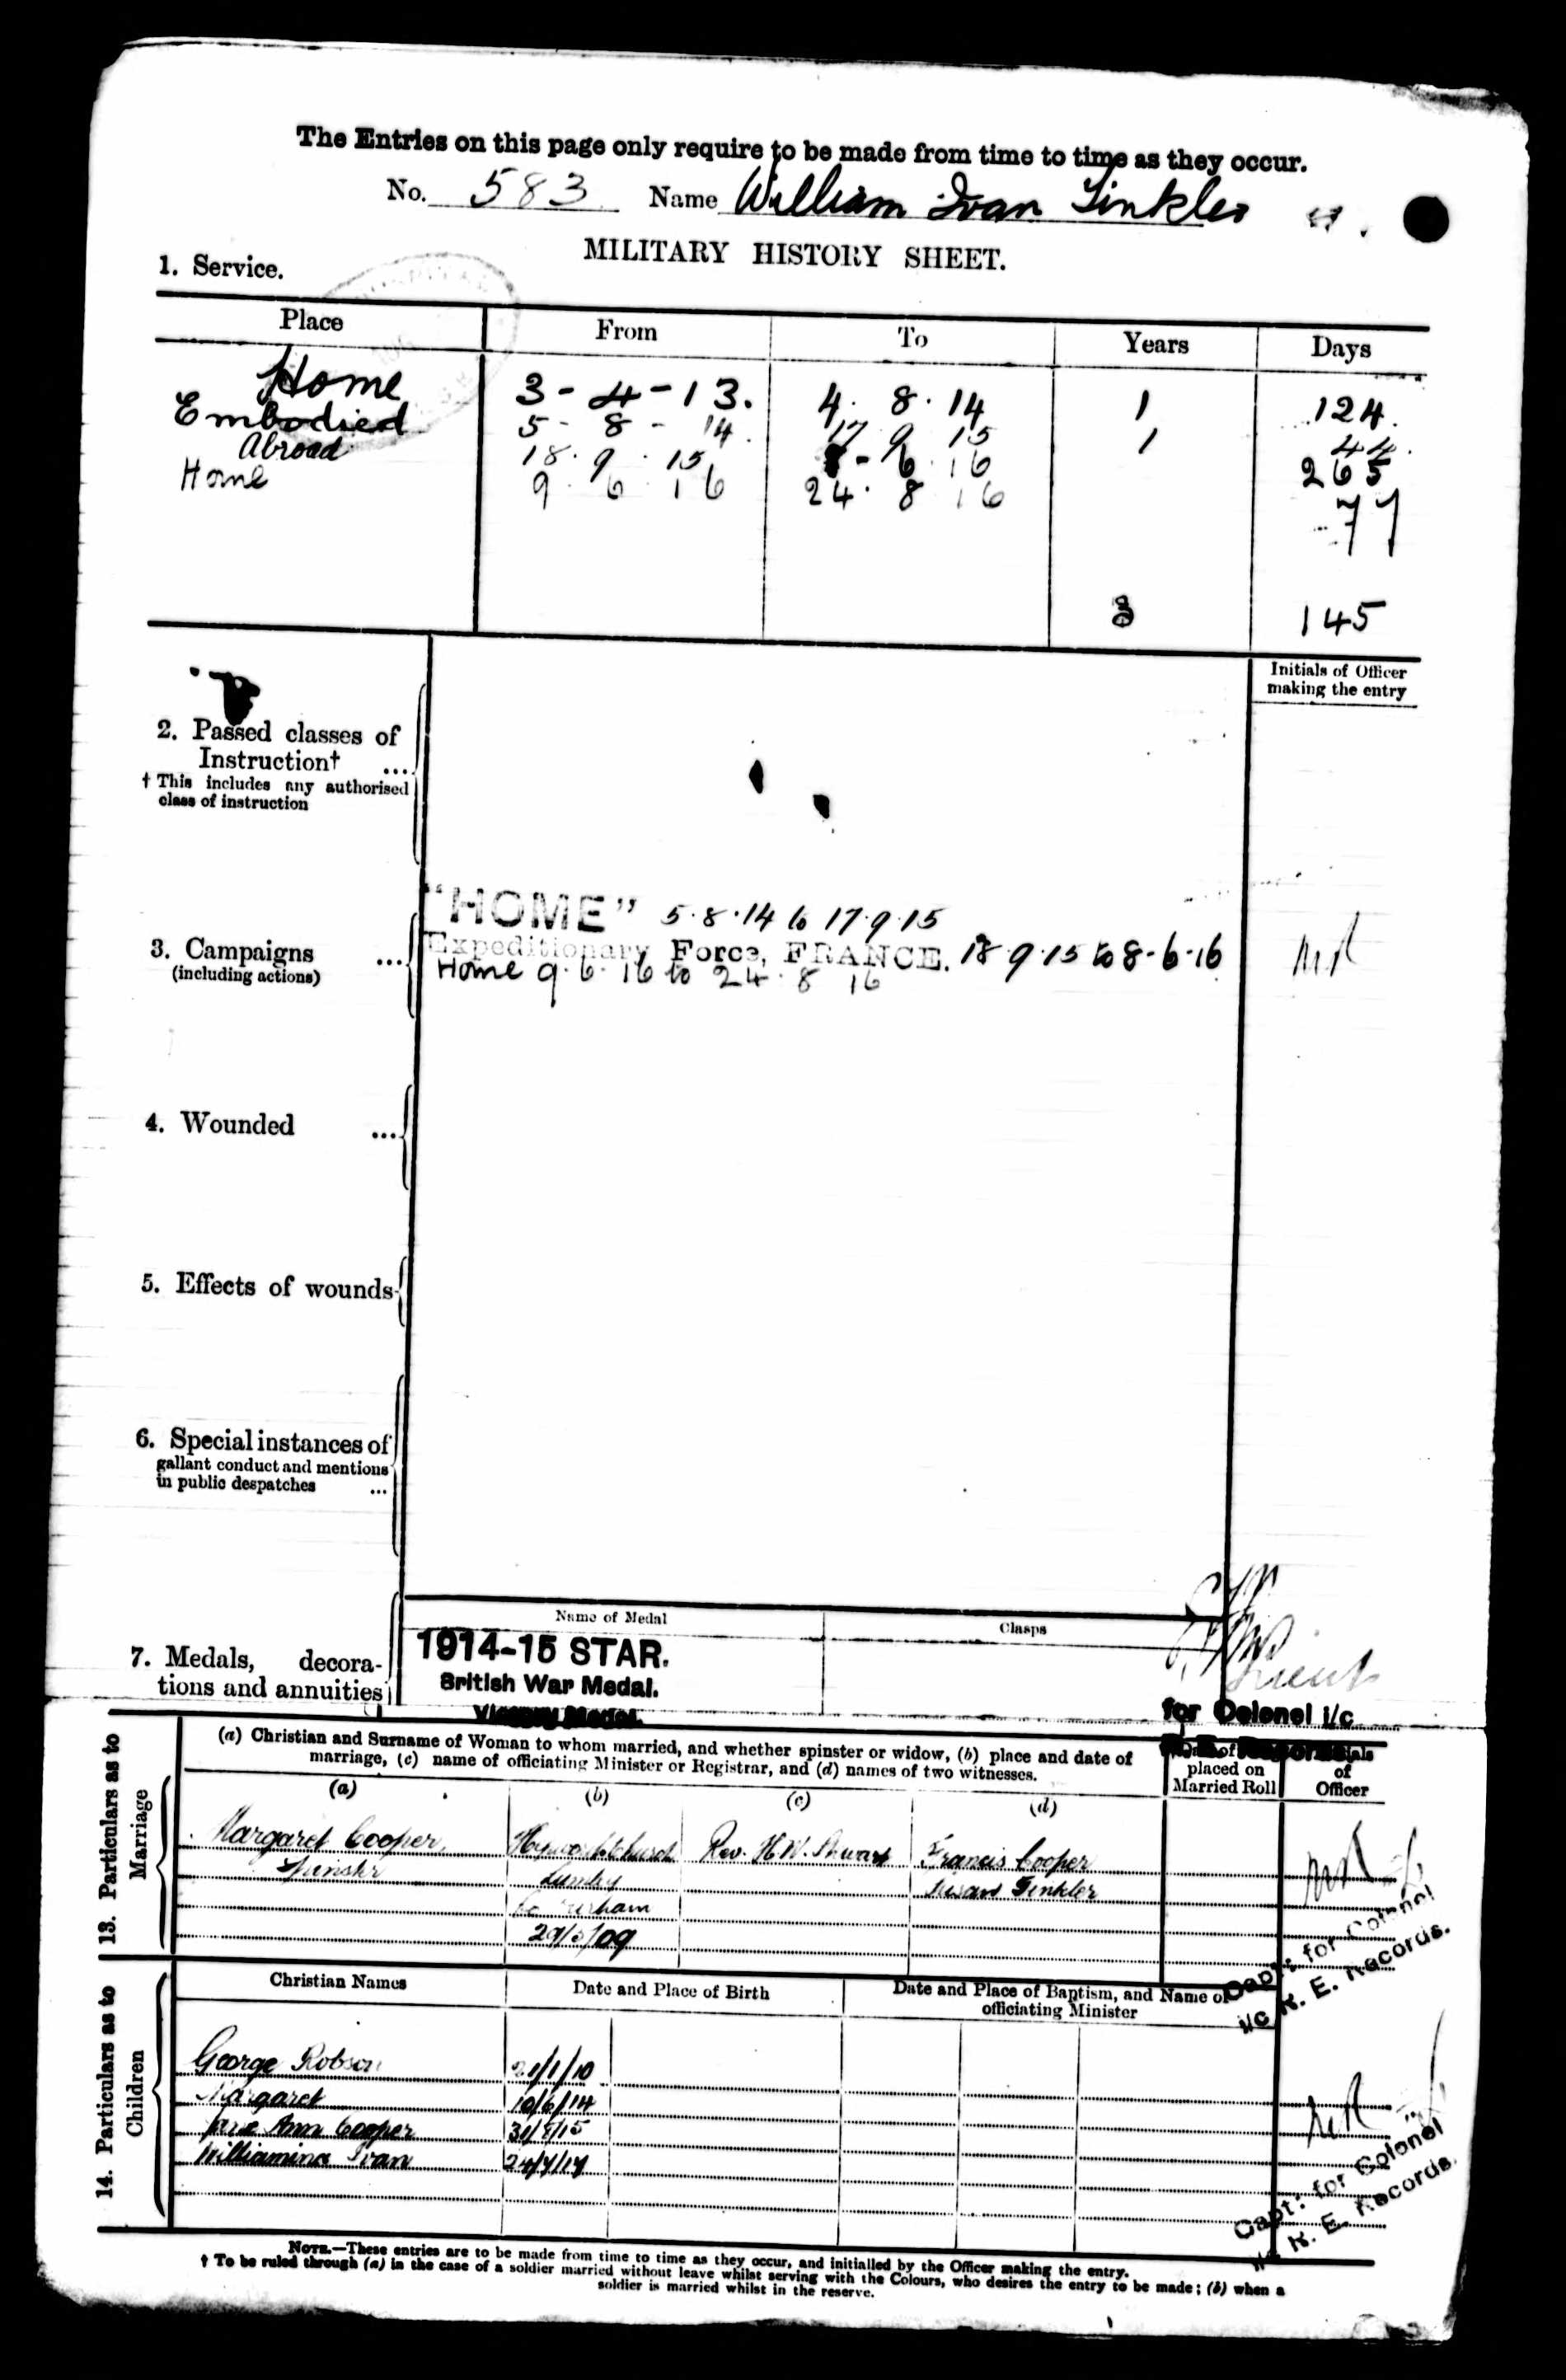 The Entries on this page only require to be made from time to time as they occur.
No. 583 Name William Ivan Tinkler
MILITARY HISTORY SHEET.
1. Service.
Place From To Years Days
Home 3-4-13. 4. 8. 14 1 124
Embodied 5-8-14. 17 9 15 1 44.
Abroad 18. 9. 15 8-6.16 265
Home 9. 6 16 24. 8 16 77
3 145
Initials of Officer
making the entry
2. Passed classes of
Instruction† ...
† This includes any authorised
class of instruction
"HOME" 5.8.14 to 17.9.15
3. Campaigns ...
(including actions)
Expeditionary Force, FRANCE. 18 9.15 to 8-6-16
Home 9.6.16 to 24.8 16
4. Wounded ...
5. Effects of wounds
6. Special instances of
gallant conduct and mentions
in public despatches ...
Name of Medal Clasps
7. Medals, decora-
tions and annuities
1914-15 STAR.
British War Medal.
Victory Medal.
Lieut
for Colonel i/c
13. Particulars as to
Marriage
(a) Christian and Surname of Woman to whom married, and whether spinster or widow, (b) place and date of
marriage, (c) name of officiating Minister or Registrar, and (d) names of two witnesses.
placed on
Married Roll
of
Officer
(a) (b) (c) (d)
Margaret Cooper, Rev. H.W. Francis Cooper
Spinster Lumley Susan Tinkler
Co Durham
Capt: for Colonel
i/c R. E. Records.
14. Particulars as to
Children
Christian Names Date and Place of Birth Date and Place of Baptism, and Name of
officiating Minister
George Robson 21/1/10
Margaret 10/6/14
Jane Ann Cooper
Williamina Ivan
Capt: for Colonel
i/c R. E. Records.
NOTE.—These entries are to be made from time to time as they occur, and initialled by the Officer making the entry.
† To be ruled through (a) in the case of a soldier married without leave whilst serving with the Colours, who desires the entry to be made; (b) when a
soldier is married whilst in the reserve.